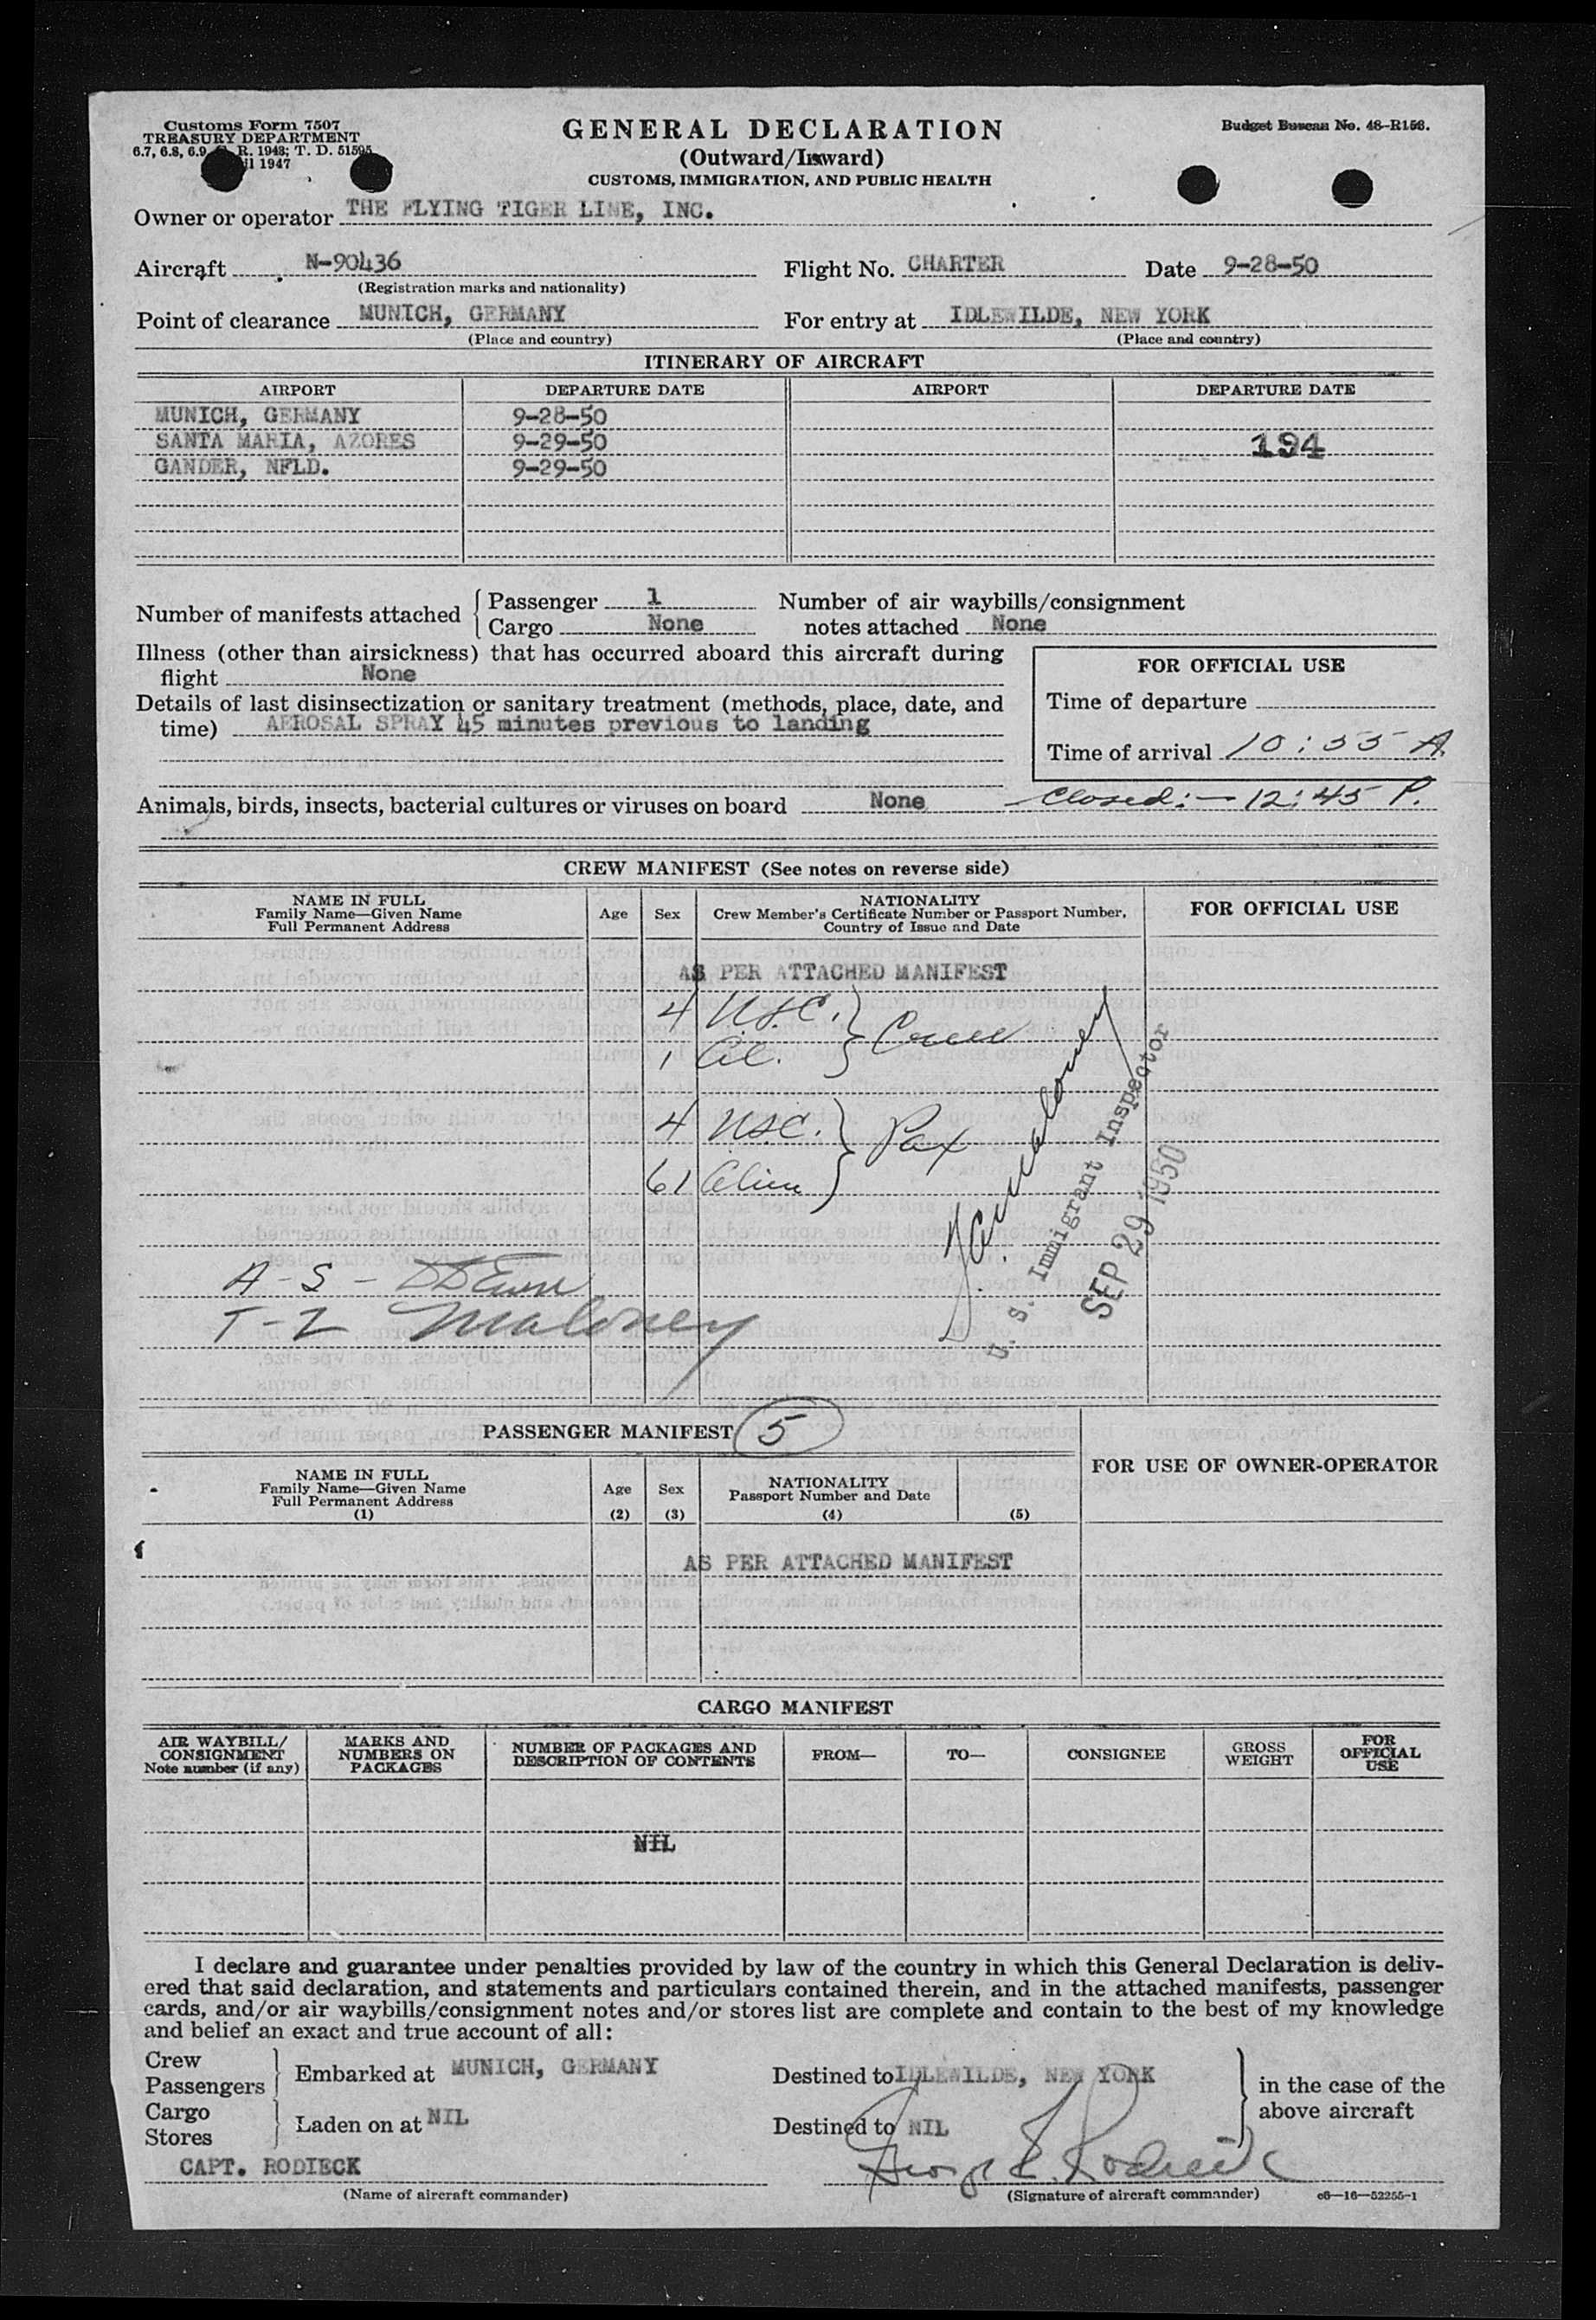 Customs Form 7507
TREASURY DEPARTMENT
6.7, 6.8, 6.9, R. 1943; T. D. 51595
1947
GENERAL DECLARATION
(Outward/Inward)
CUSTOMS, IMMIGRATION, AND PUBLIC HEALTH
Budget Bureau No. 48-R158.
Owner or operator THE FLYING TIGER LINE, INC.
Aircraft N-90436 Flight No. CHARTER Date 9-28-50
(Registration marks and nationality)
Point of clearance MUNICH, GERMANY For entry at IDLEWILDE, NEW YORK
(Place and country) (Place and country)
ITINERARY OF AIRCRAFT
AIRPORT DEPARTURE DATE AIRPORT DEPARTURE DATE
MUNICH, GERMANY 9-28-50
SANTA MARIA, AZORES 9-29-50 194
GANDER, NFLD. 9-29-50
Number of manifests attached { Passenger 1 Number of air waybills/consignment
Cargo None notes attached None
Illness (other than airsickness) that has occurred aboard this aircraft during
flight None
Details of last disinsectization or sanitary treatment (methods, place, date, and
time) AEROSAL SPRAY 45 minutes previous to landing
FOR OFFICIAL USE
Time of departure
Time of arrival 10:55 A.
Closed:- 12:45 P.
Animals, birds, insects, bacterial cultures or viruses on board None
CREW MANIFEST (See notes on reverse side)
NAME IN FULL
Family Name—Given Name
Full Permanent Address
Age
Sex
NATIONALITY
Crew Member's Certificate Number or Passport Number,
Country of Issue and Date
FOR OFFICIAL USE
AS PER ATTACHED MANIFEST
4 U.S.C. } Crew
1 Al.
4 U.S.C. } Pax
61 Alien
Maloney
U. S. Immigrant Inspector
SEP 29 1950
A-S-
T-Z Maloney
PASSENGER MANIFEST 5
NAME IN FULL
Family Name—Given Name
Full Permanent Address
(1)
Age
(2)
Sex
(3)
NATIONALITY
Passport Number and Date
(4)
(5)
FOR USE OF OWNER-OPERATOR
AS PER ATTACHED MANIFEST
CARGO MANIFEST
AIR WAYBILL/
CONSIGNMENT
Note number (if any)
MARKS AND
NUMBERS ON
PACKAGES
NUMBER OF PACKAGES AND
DESCRIPTION OF CONTENTS
FROM—
TO—
CONSIGNEE
GROSS
WEIGHT
FOR
OFFICIAL
USE
NIL
I declare and guarantee under penalties provided by law of the country in which this General Declaration is deliv-
ered that said declaration, and statements and particulars contained therein, and in the attached manifests, passenger
cards, and/or air waybills/consignment notes and/or stores list are complete and contain to the best of my knowledge
and belief an exact and true account of all:
Crew
Passengers } Embarked at MUNICH, GERMANY Destined to IDLEWILDE, NEW YORK
Cargo
Stores } Laden on at NIL Destined to NIL
} in the case of the
above aircraft
CAPT. RODIECK George L. Rodieck
(Name of aircraft commander) (Signature of aircraft commander) c6—16—52255-1